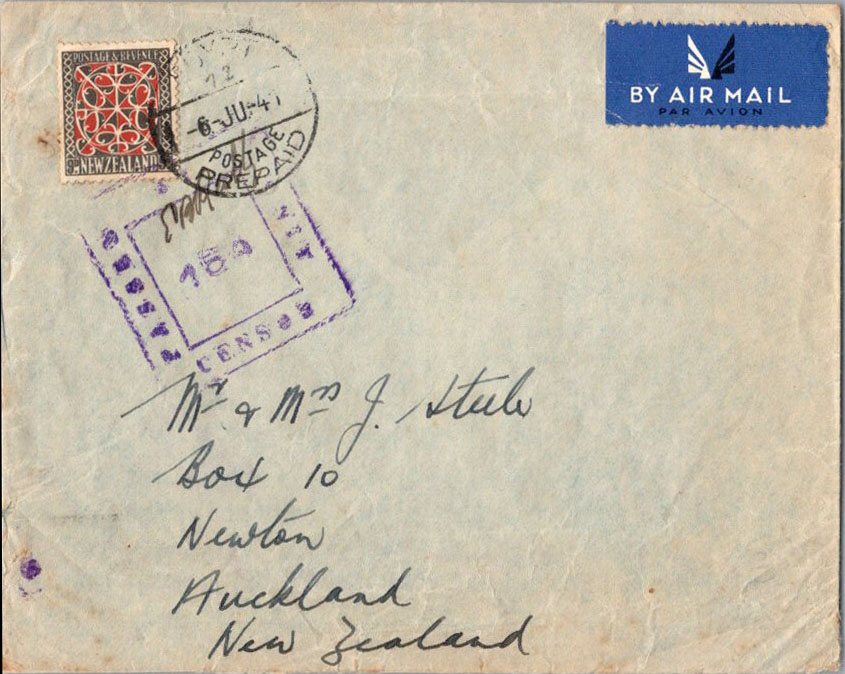 POSTAGE & REVENUE
9D NEW ZEALAND
EGYPT
12
-6-JU-41
POSTAGE
PREPAID
BY AIR MAIL
PAR AVION
PASSED
CENSOR
Mr & Mrs J. Steele
Box 10
Newton
Auckland
New Zealand